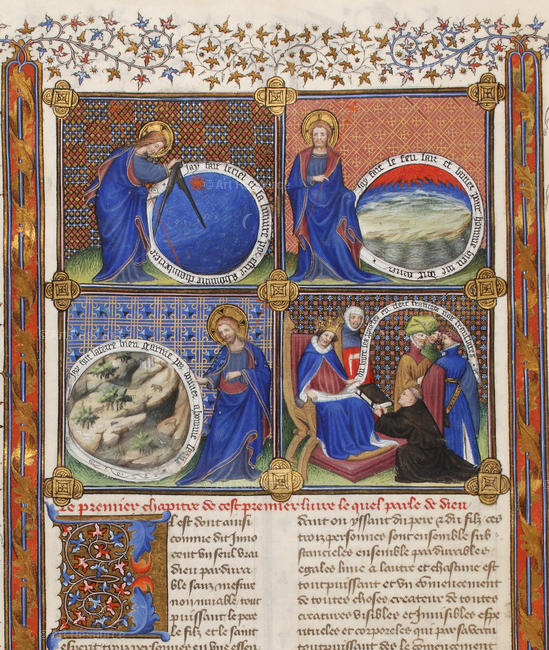 Jay fait le ciel et la lumiere por
Jay fait le feu lair et leaue pour homme bien me doit amer
Jay fait la terre bien garnie pr
Le premier chapitre de cest premier livre le quel parle de dieu
Il est dont ainsi
comme dit Inno
cent un seul vrai
dieu pardura
ble sanz mesure
non muable tout
puissant le pere
le filz et le saint
esperit trois personnes en une essen
dont en yssant du pere & du filz ces
trois personnes sont ensemble sub
stancieles ensemble pardurables
egales lune a lautre et chascune est
tout puissant et un commencement
de toutes choses createur de toutes
creatures visibles et Invisibles espe
ritueles et corporeles qui par sa vertu
tout puissant des le commencement